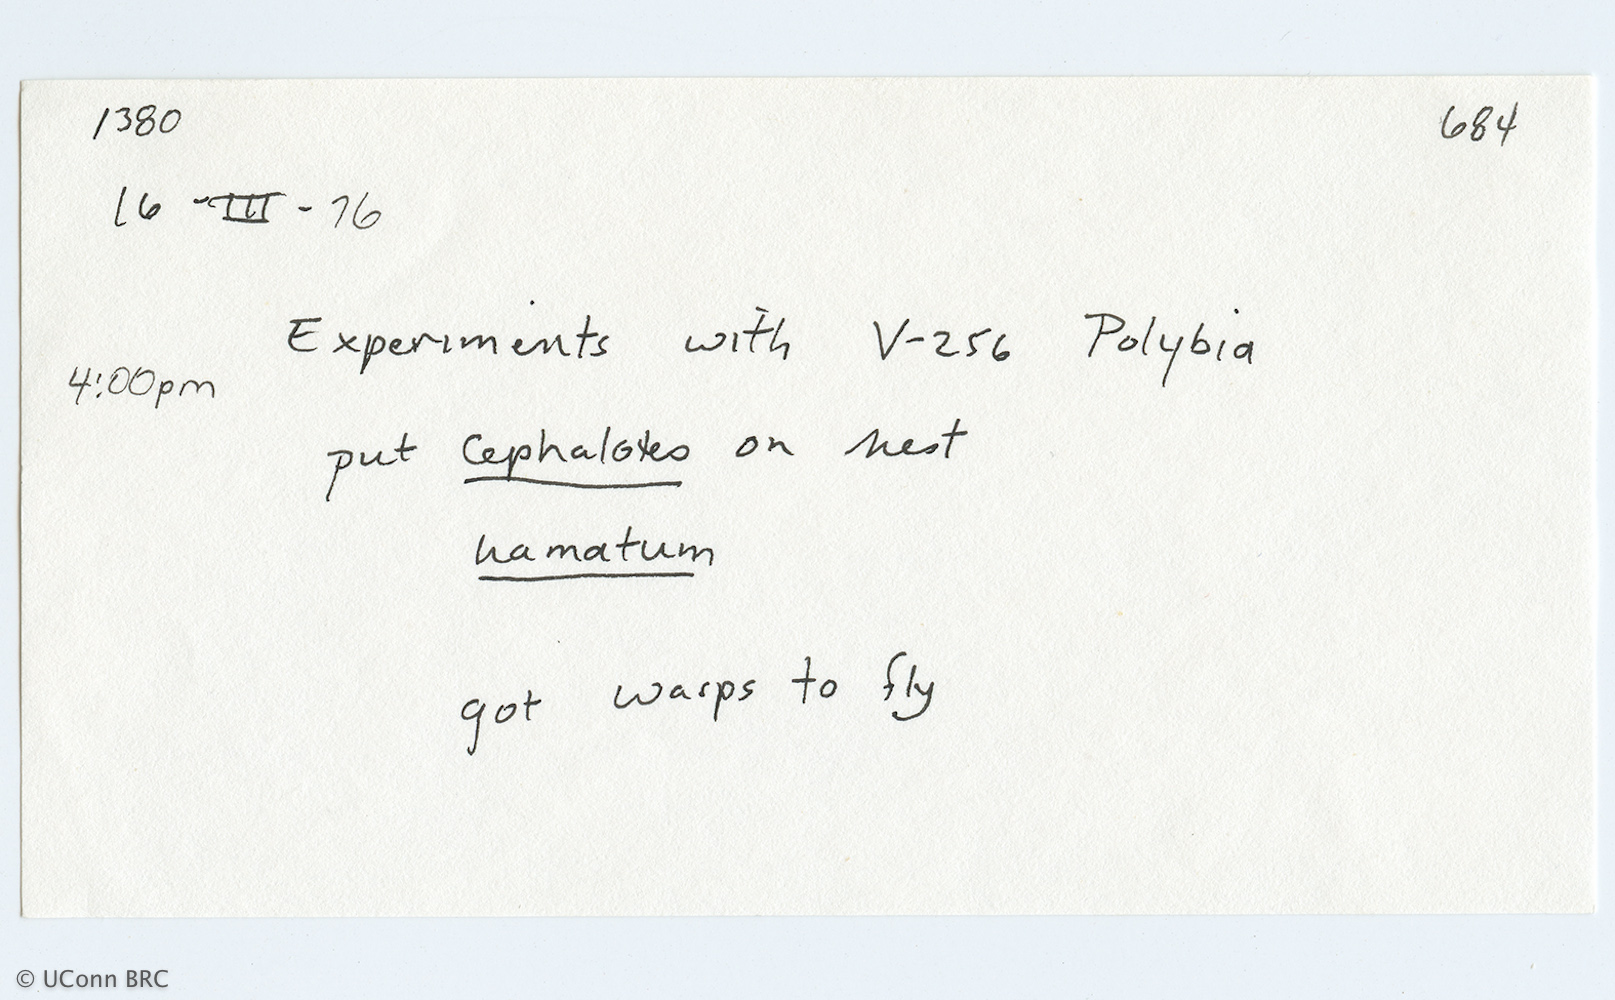 1380 684
16 - III - 76
Experiments with V-256 Polybia
4:00pm
put Cephalotes on nest
hamatum
got wasps to fly
© UConn BRC